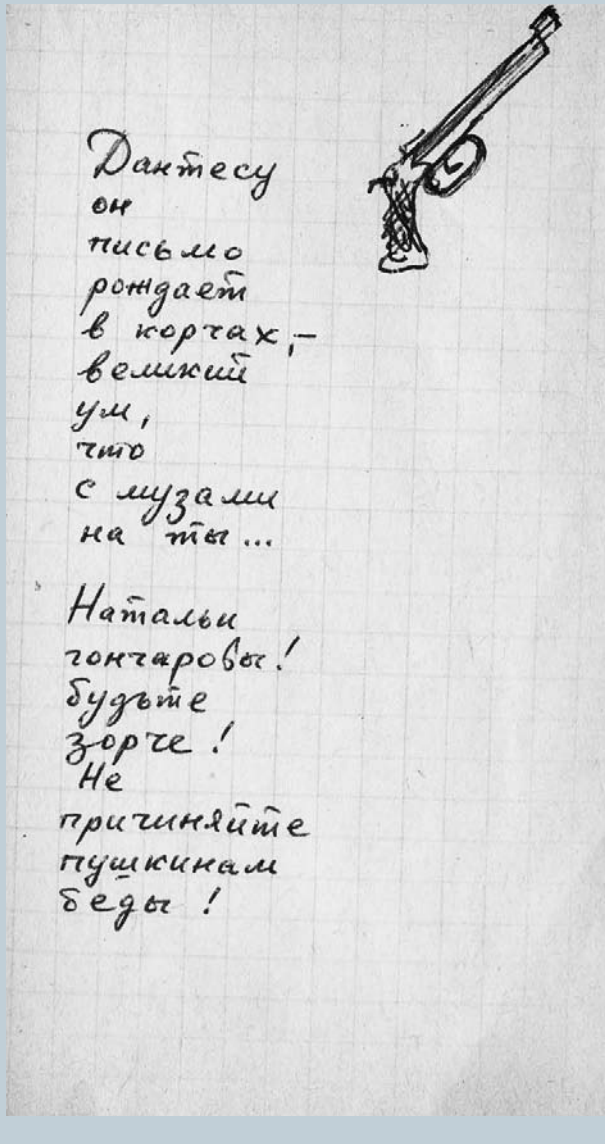 Дантесу
он
письмо
рождает
в корчах,–
великий
ум,
что
с музами
на ты...
Натальи
гончаровы!
будьте
зорче!
Не
причиняйте
пушкинам
беды!